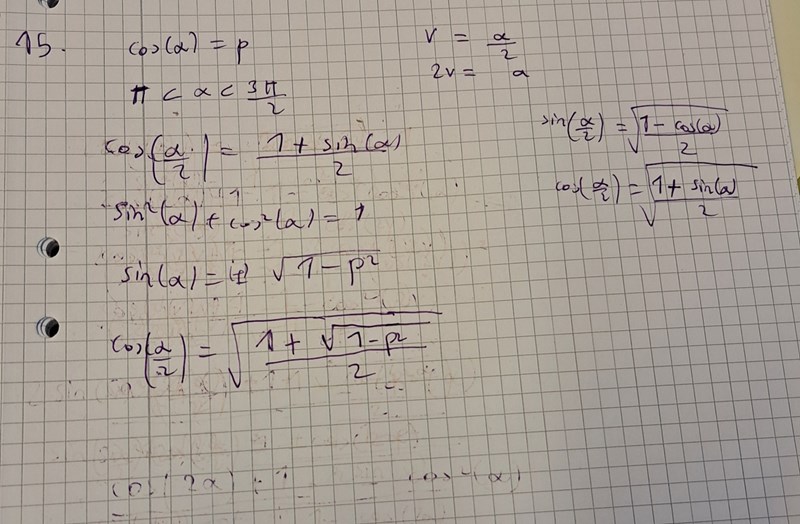 15. cos(α) = p
π < α < 3π/2
cos(α/2) = 1 + sin(α)/2
sin²(α) + cos²(α) = 1
sin(α) = √1-p²
cos(α/2) = √(1 + √1-p²)/2
v = α/2
2v = α
sin(α/2) = √(1 - cos(α))/2
cos(α/2) = √(1 + sin(α))/2